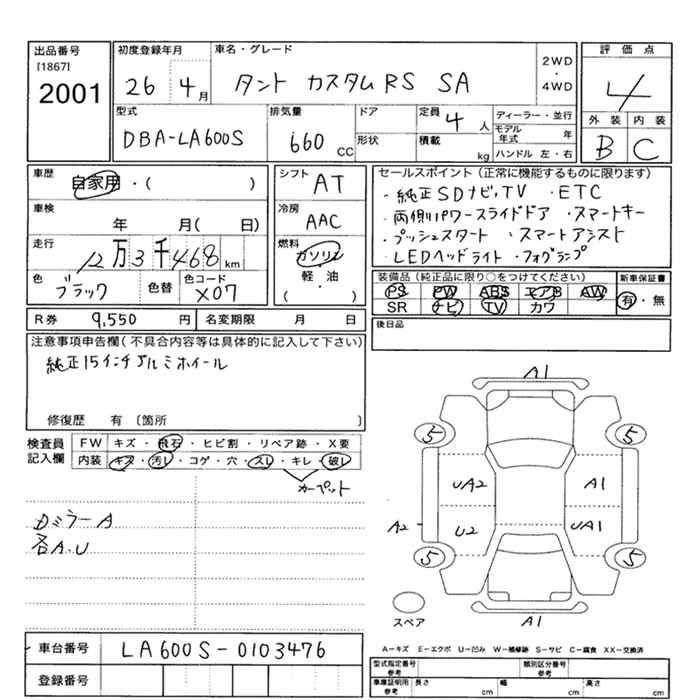 出品番号
[1867]
2001
初度登録年月
26 4月
車名・グレード
タント カスタムRS SA
2WD
・
4WD
評価点
4
外装 内装
B C
型式
DBA-LA600S
排気量
660 CC
ドア
形状
定員 4 人
積載 kg
ディーラー・並行
モデル年式 年
ハンドル 左・右
車歴
自家用・( )
車検
年 月( 日)
走行
12万3千468km
色
ブラック
色替
色コード
X07
シフト
AT
冷房
AAC
燃料
ガソリン
軽・油
( )
セールスポイント(正常に機能するものに限ります)
・純正SDナビ,TV ・ETC
・両側パワースライドドア ・スマートキー
・プッシュスタート ・スマートアシスト
・LEDヘッドライト ・フォグランプ
装備品(純正品に限り○をつけてください)
新車保証書
PS PW ABS エアB AW
SR ナビ TV カワ
有・無
R券 9,550 円
名変期限 月 日
後日品
注意事項申告欄(不具合内容等は具体的に記入して下さい)
純正15インチアルミホイール
修復歴 有 〔箇所 〕
検査員
記入欄
FW キズ・飛石・ヒビ割・リペア跡・X要
内装 キズ・汚レ・コゲ・穴・スレ・キレ・破レ
カーペット
ドミラーA
各A.U
A1
5 5
UA2 A1
A2 U2 UA1
5 5
スペア
A1
車台番号 LA600S-0103476
登録番号
A―キズ E―エクボ U―凹み W―補修跡 S―サビ C―腐食 XX―交換済
型式指定番号
参考
類別区分番号
参考
車庫証明用
参考
長さ cm
幅 cm
高さ cm